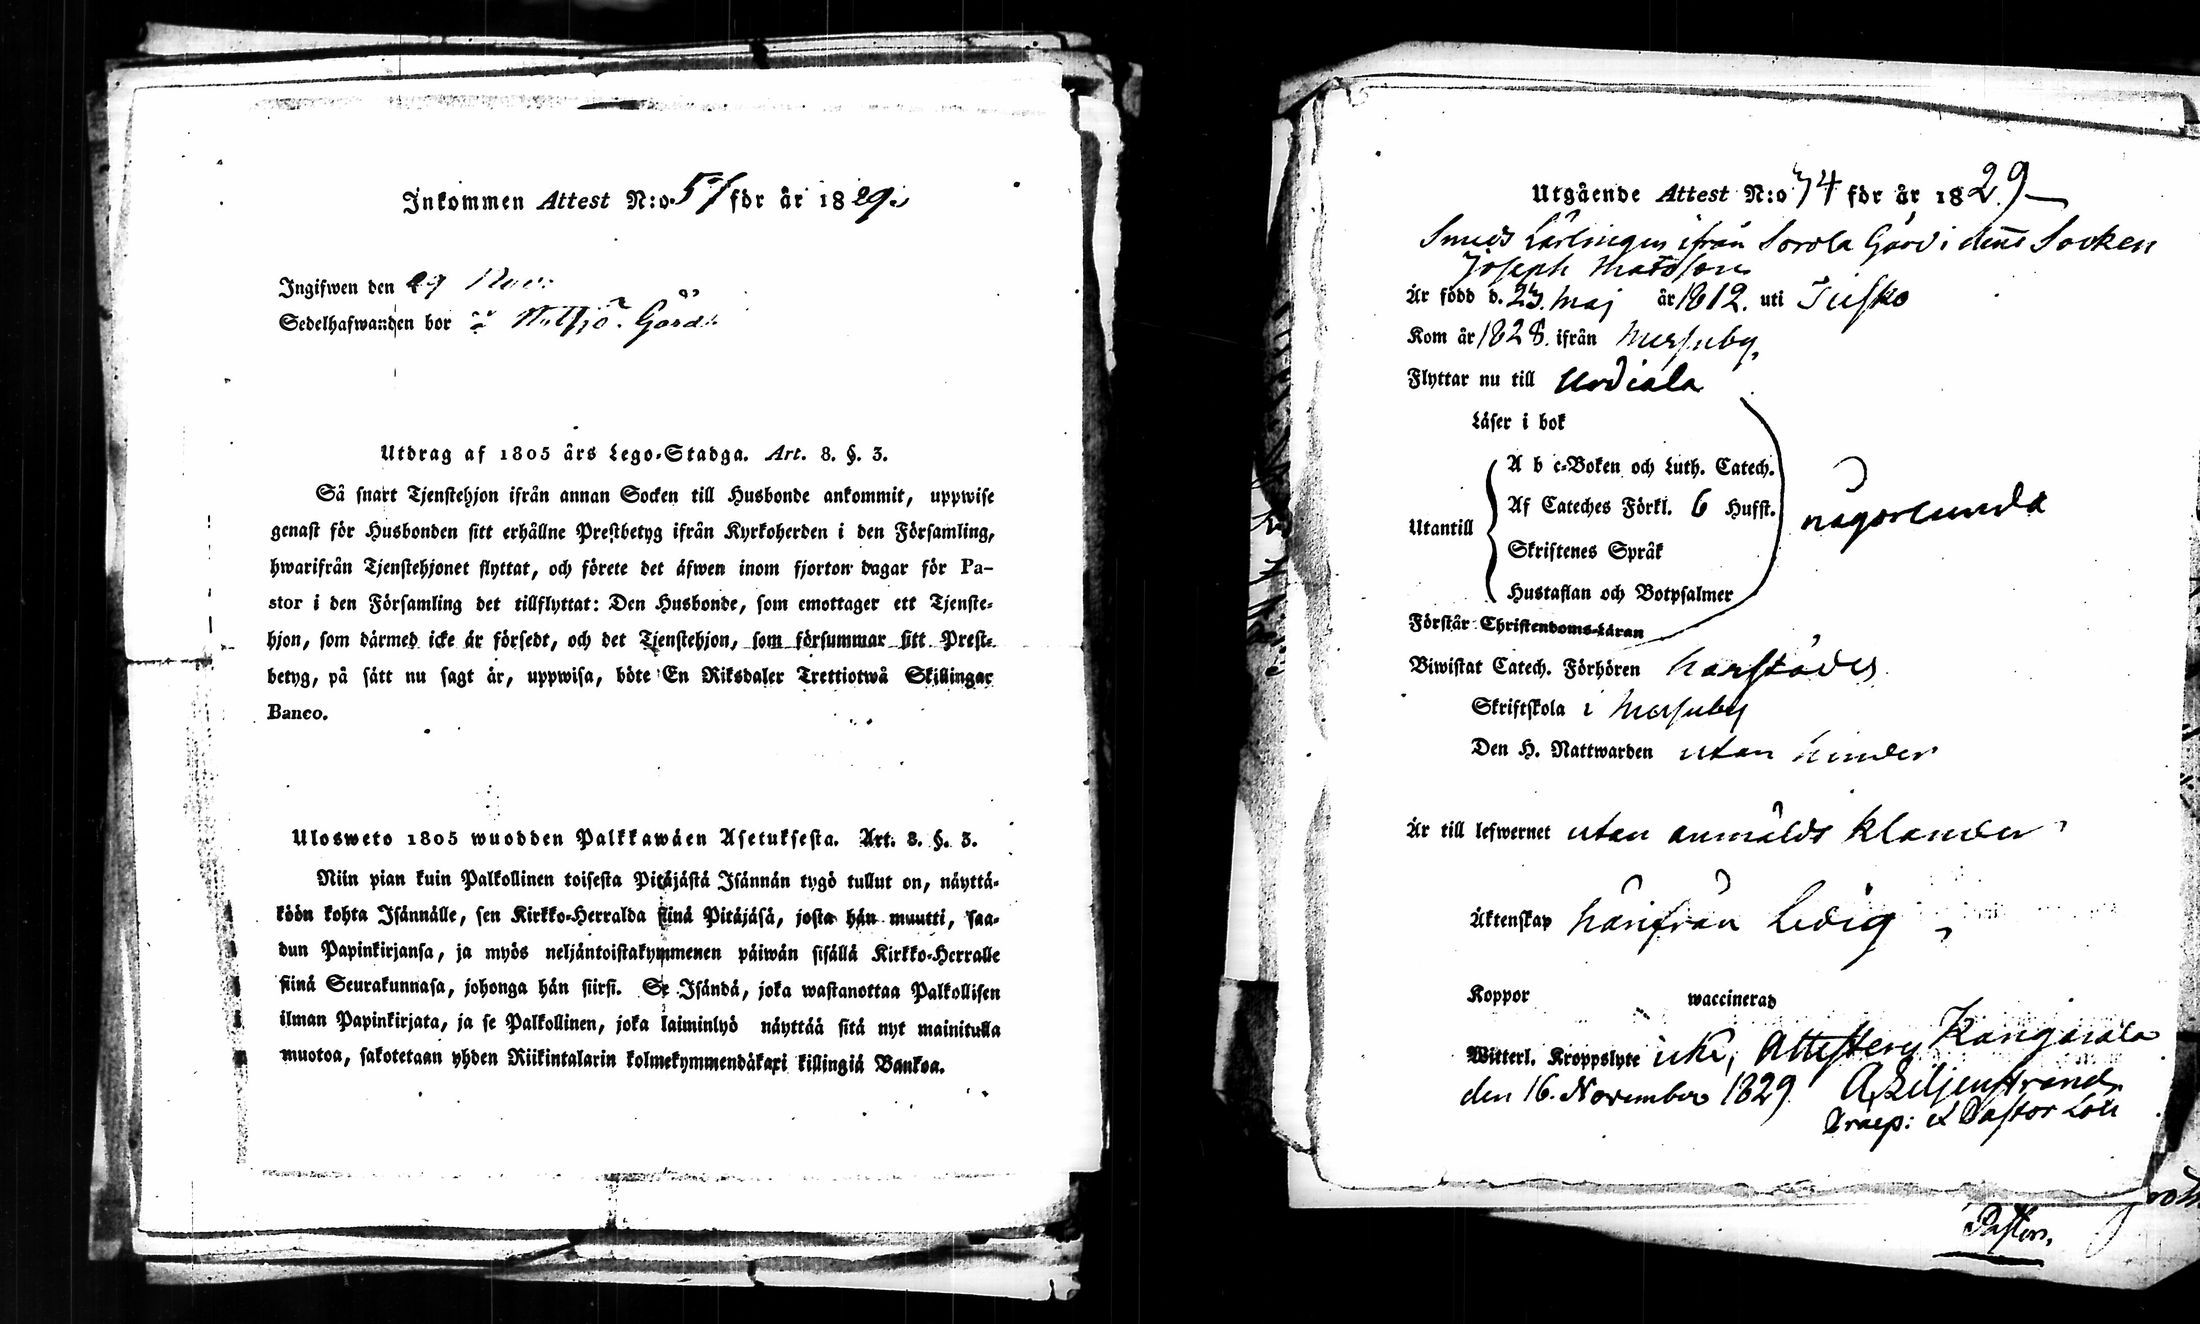 Inkommen Attest N:o 57 för år 1829.
Ingifwen den 29 Nov:
Sedelhafwanden bor å Nuttjo Gård.
Utdrag af 1805 års Lego-Stadga. Art. 8. §. 3.
Så snart Tjenstehjon ifrån annan Socken till Husbonde ankommit, uppwise
genast för Husbonden sitt erhållne Prestbetyg ifrån Kyrkoherden i den Församling,
hwarifrån Tjenstehjonet flyttat, och förete det äfwen inom fjorton dagar för Pa-
stor i den Församling det tillflyttat: Den Husbonde, som emottager ett Tjenste-
hjon, som därmed icke är försedt, och det Tjenstehjon, som försummar sitt Prest-
betyg, på sätt nu sagt är, uppwisa, böte En Riksdaler Trettiotwå Skillingar
Banco.
Ulosweto 1805 wuodden Palkkawäen Asetuksesta. Art. 8. §. 3.
Niin pian kuin Palkollinen toisesta Pitäjästä Isännän tygö tullut on, näyttä-
köön kohta Isännälle, sen Kirkko-Herralda siinä Pitäjäsä, josta hän muutti, saa-
dun Papinkirjansa, ja myös neljäntoistakymmenen päiwän sisällä Kirkko-Herralle
siinä Seurakunnasa, johonga hän siirsi. Se Isändä, joka wastanottaa Palkollisen
ilman Papinkirjata, ja se Palkollinen, joka laiminlyö näyttää sitä nyt mainitulla
muotoa, sakotetaan yhden Riikintalarin kolmekymmendäkaxi killingiä Bankoa.
Utgående Attest N:o 74 för år 1829
Smeds Lärlingen ifrån Sorola Gård i denne Socken
Joseph Matsson
Är född d. 23. Maj år 1812. uti Jusko
Kom år 1828. ifrån Messuby,
Flyttar nu till Urdiala
Läser i bok
A b c-Boken och Luth. Catech.
Af Cateches Förkl. 6 Hufst.
Utantill
någorlunda
Skriftenes Språk
Hustaflan och Botpsalmer
Förstår Christendoms-Läran
Biwistat Catech. Förhören härstädes
Skriftskola i Messuby
Den H. Nattwarden utan hinder
Är till lefwernet utan anmäldt klander
Äktenskap härifrån ledig
Koppor waccinerad
Witterl. Kroppslyte icke, Attesterar Kangasala
den 16. November 1829. A Liljenstrand
Praep: & Pastor Loci
Pastor.